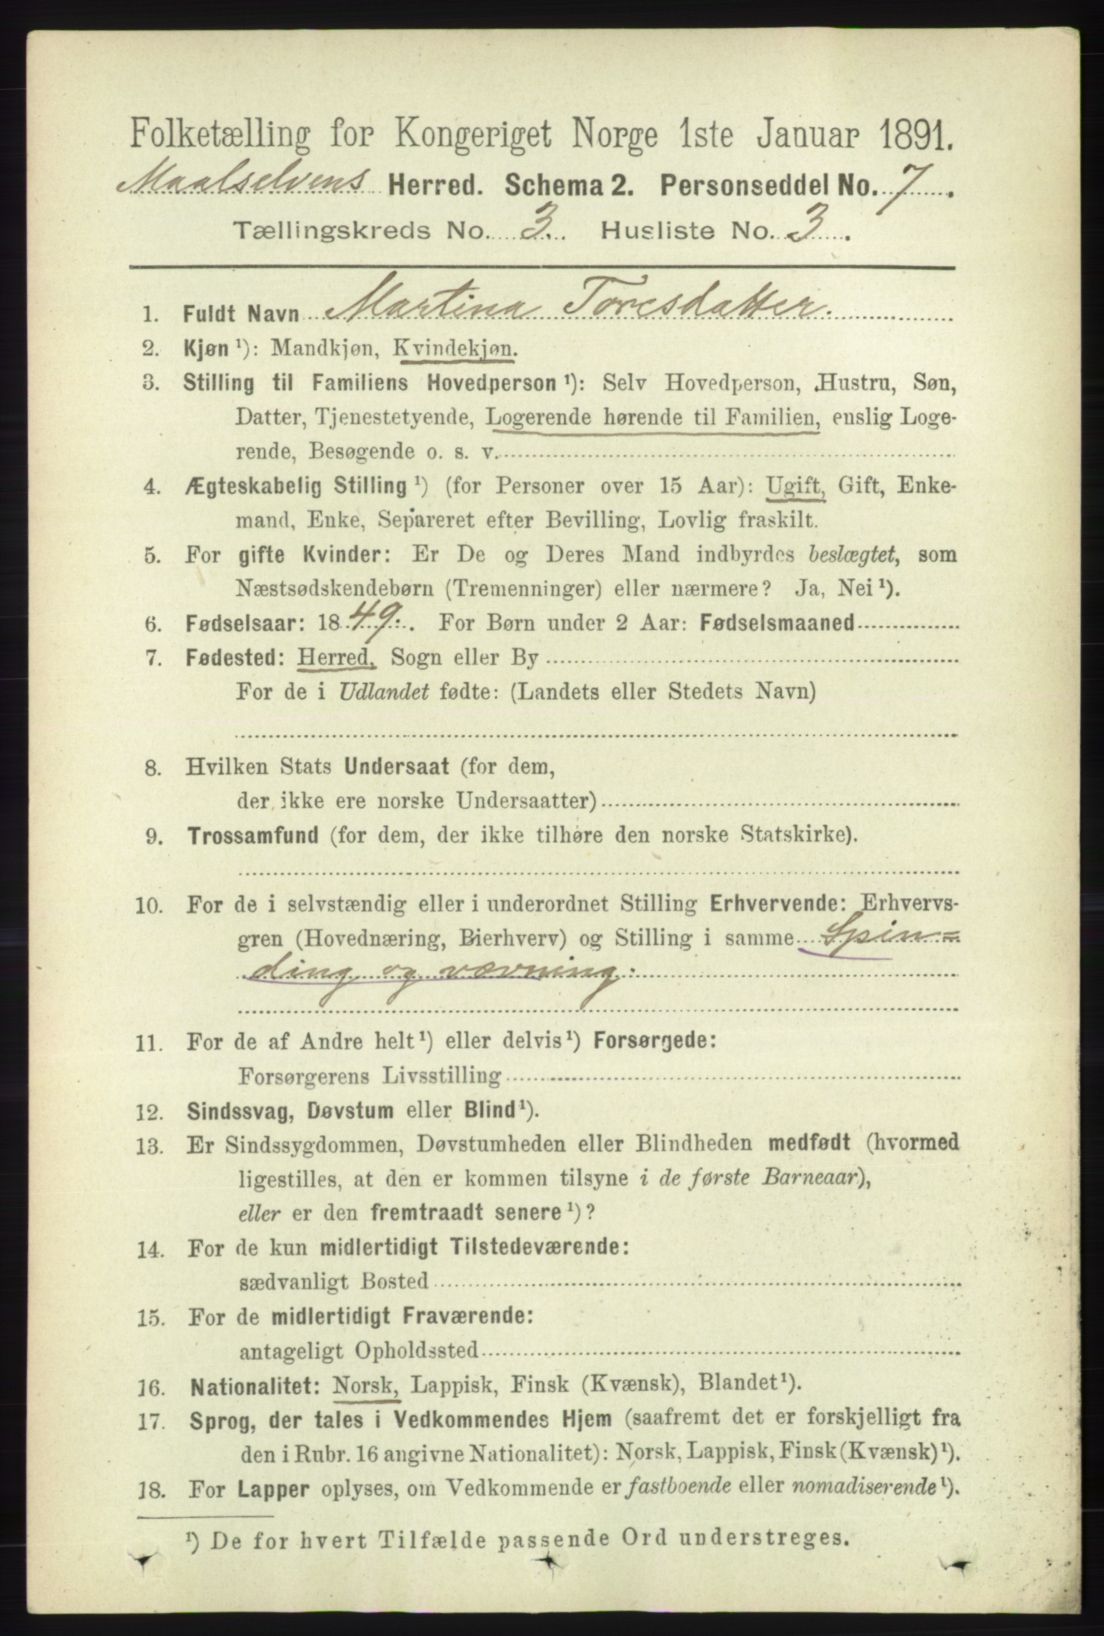 Folketælling for Kongeriget Norge 1ste Januar 1891.
Maalselvens Herred. Schema 2. Personseddel No. 7.
Tællingskreds No. 3. Husliste No. 3.
1. Fuldt Navn Martina Toresdatter.
2. Kjøn ¹): Mandkjøn, Kvindekjøn.
3. Stilling til Familiens Hovedperson ¹): Selv Hovedperson, Hustru, Søn,
Datter, Tjenestetyende, Logerende hørende til Familien, enslig Loge-
rende, Besøgende o. s. v.
4. Ægteskabelig Stilling ¹) (for Personer over 15 Aar): Ugift, Gift, Enke-
mand, Enke, Separeret efter Bevilling, Lovlig fraskilt.
5. For gifte Kvinder: Er De og Deres Mand indbyrdes beslægtet, som
Næstsødskendebørn (Tremenninger) eller nærmere? Ja, Nei ¹).
6. Fødselsaar: 1849. For Børn under 2 Aar: Fødselsmaaned
7. Fødested: Herred, Sogn eller By
For de i Udlandet fødte: (Landets eller Stedets Navn)
8. Hvilken Stats Undersaat (for dem,
der ikke ere norske Undersaatter)
9. Trossamfund (for dem, der ikke tilhøre den norske Statskirke).
10. For de i selvstændig eller i underordnet Stilling Erhvervende: Erhvervs-
gren (Hovednæring, Bierhverv) og Stilling i samme Spin=
ding og vævning.
11. For de af Andre helt ¹) eller delvis ¹) Forsørgede:
Forsørgerens Livsstilling
12. Sindssvag, Døvstum eller Blind ¹).
13. Er Sindssygdommen, Døvstumheden eller Blindheden medfødt (hvormed
ligestilles, at den er kommen tilsyne i de første Barneaar),
eller er den fremtraadt senere ¹)?
14. For de kun midlertidigt Tilstedeværende:
sædvanligt Bosted
15. For de midlertidigt Fraværende:
antageligt Opholdssted
16. Nationalitet: Norsk, Lappisk, Finsk (Kvænsk), Blandet ¹).
17. Sprog, der tales i Vedkommendes Hjem (saafremt det er forskjelligt fra
den i Rubr. 16 angivne Nationalitet): Norsk, Lappisk, Finsk (Kvænsk) ¹).
18. For Lapper oplyses, om Vedkommende er fastboende eller nomadiserende ¹).
¹) De for hvert Tilfælde passende Ord understreges.